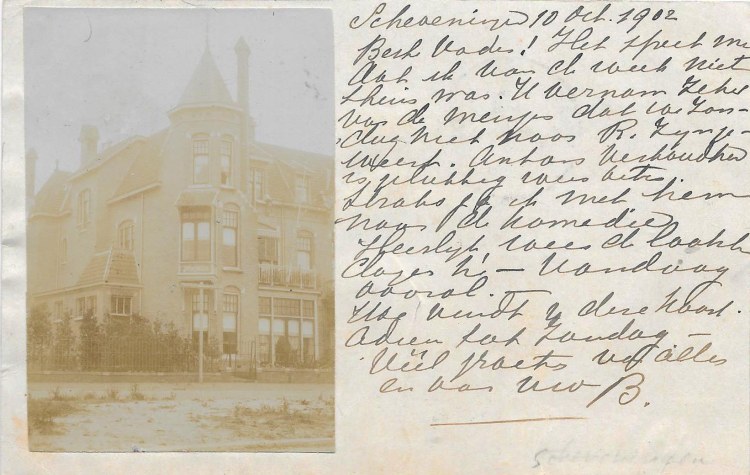 Scheveningen 10 Oct. 1902
Beste Vader! Het speet me
dat ik van de week niet
thuis was. U vernam zeker
van de meisjes dat we Zon-
dag niet naar R. zijn ge-
weest. Anton's verkoudheid
is gelukkig weer beter.
Straks ga ik met hem
naar de komedie
Heerlijk weer de laatste
dagen hè — Vandaag
vooral. —
Hoe vindt u deze kaart.
Adieu tot Zondag —
Veel groets van allen
en van uw B.
Scheveningen